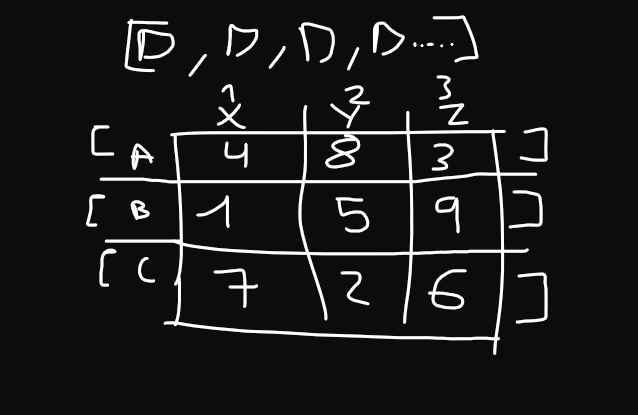 [D, D, D, D.....]
1 2 3
X Y Z
[ A 4 8 3 ]
[ B 1 5 9 ]
[ C 7 2 6 ]